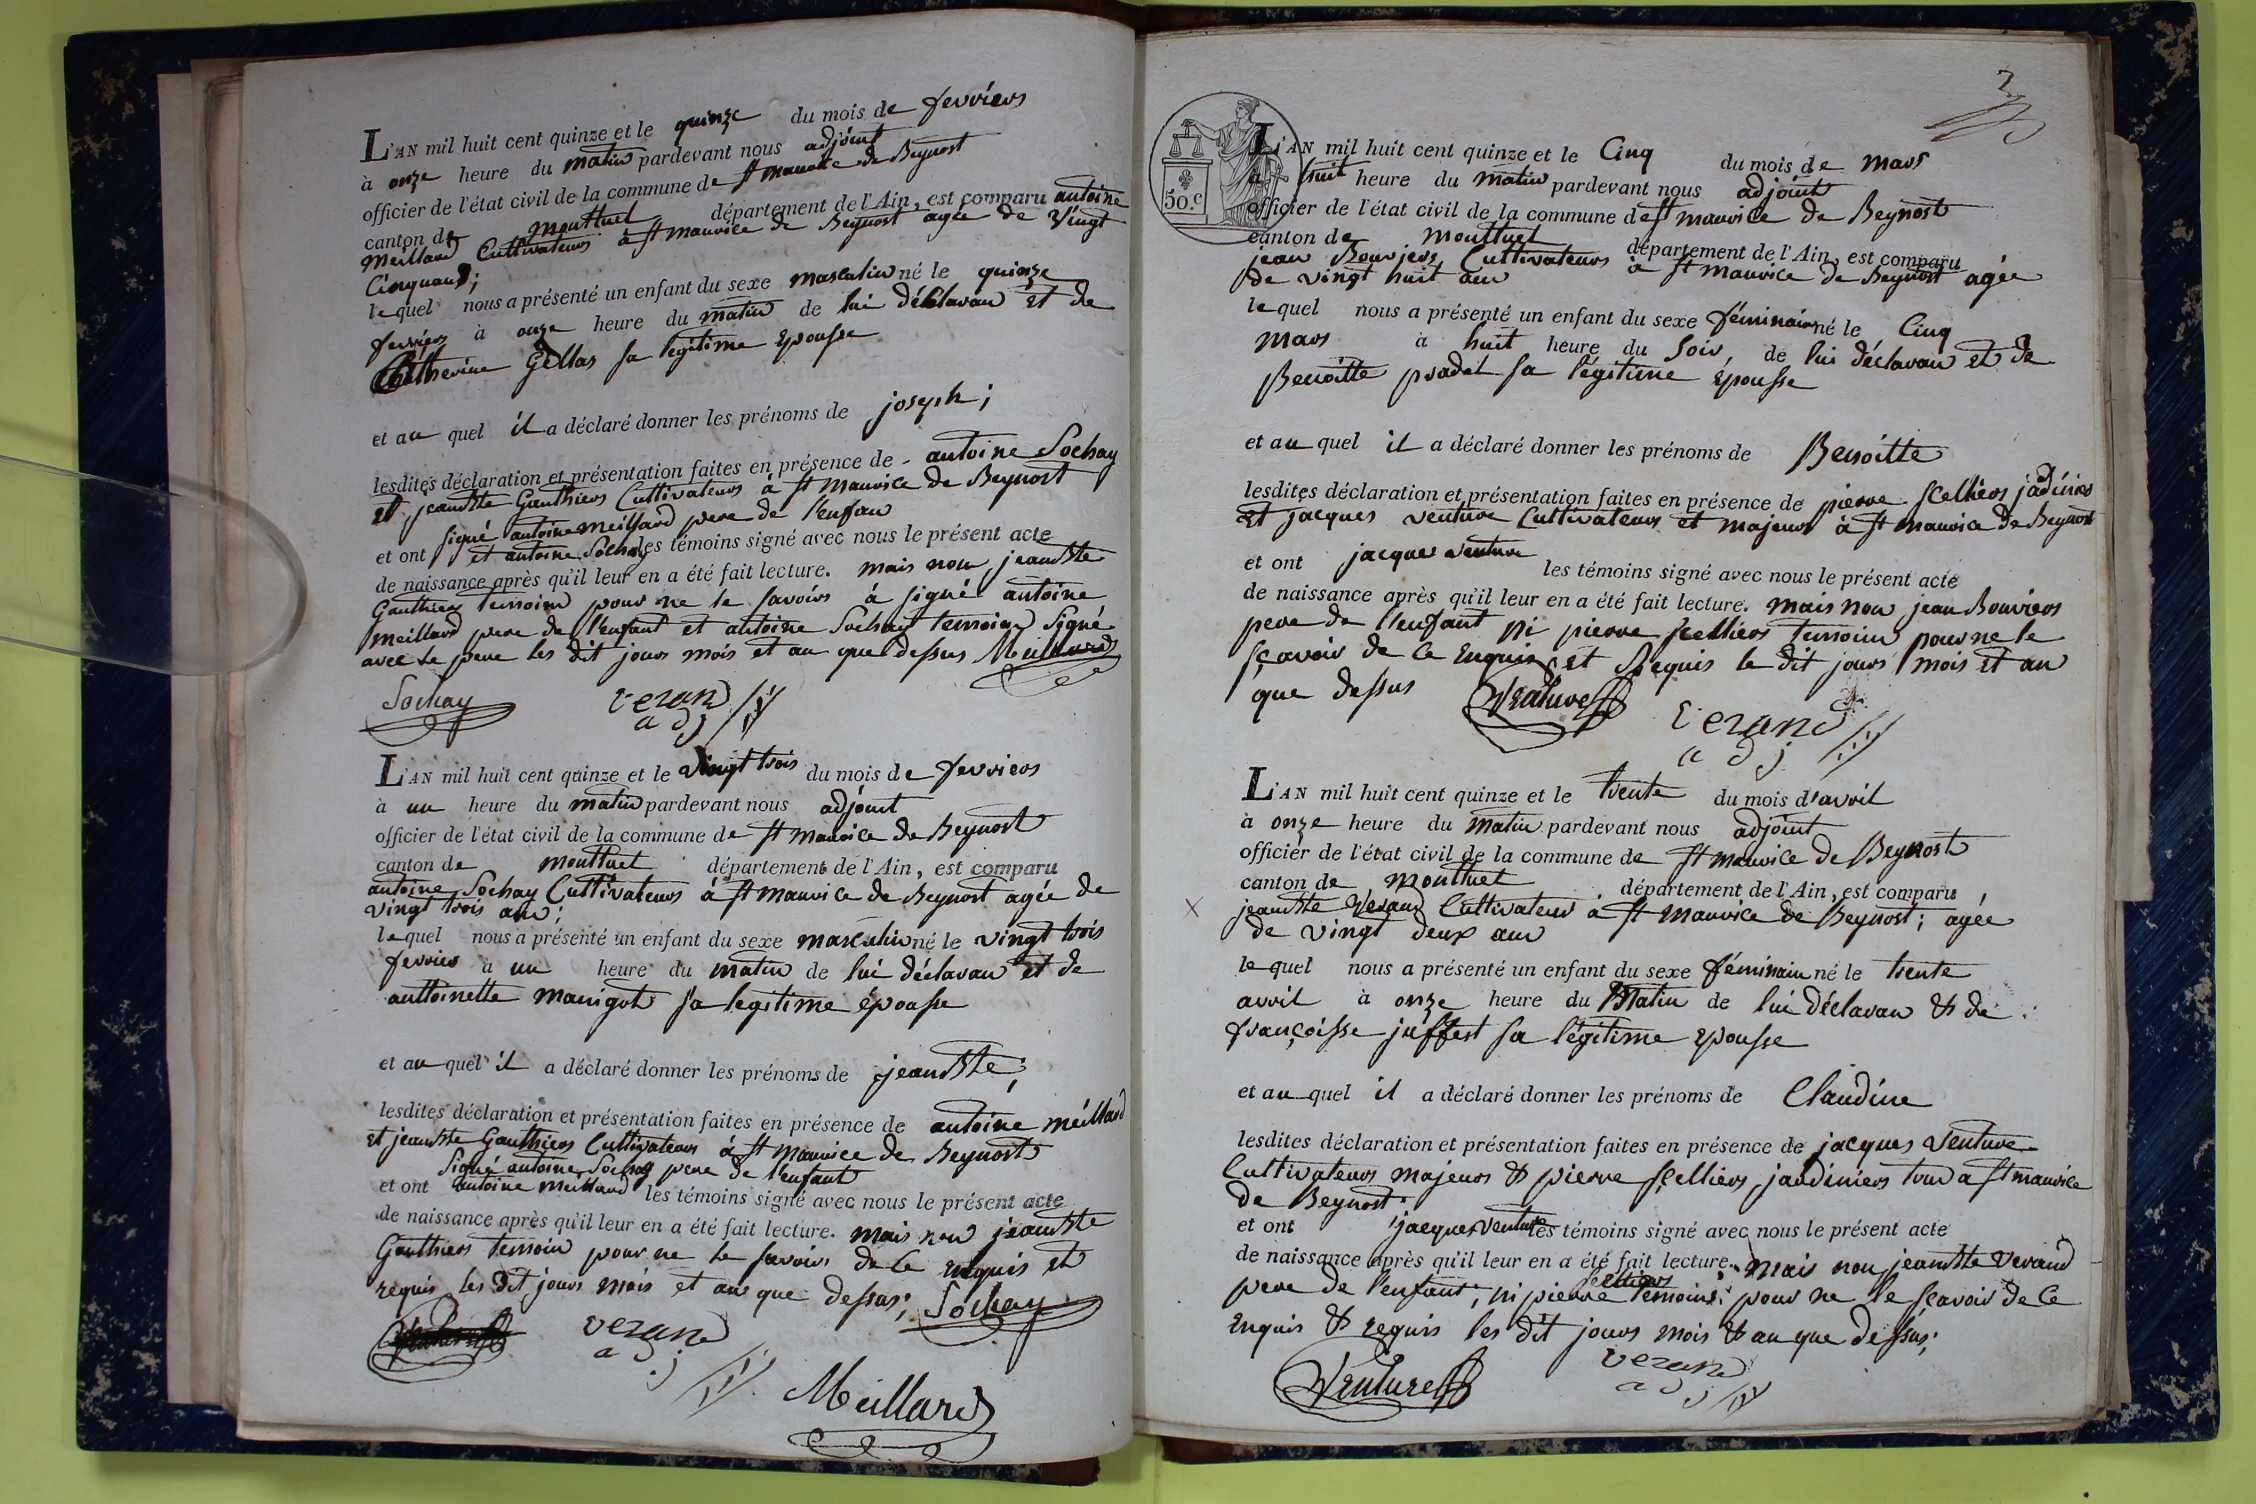 L'AN mil huit cent quinze et le quinze du mois de fevriers
à onze heure du matin pardevant nous adjoint
officier de l'état civil de la commune de st maurice de Beynost
canton de montluel département de l'Ain, est comparu antoine
meillard Cultivateurs à st maurice de Beynost agée de vingt
Cinq ans;
lequel nous a présenté un enfant du sexe masculin né le quinze
fevriers à onze heure du matin de lui déclarau et de
Catherine Gellas sa legitime Epousse
et au quel il a déclaré donner les prénoms de joseph;
lesdites déclaration et présentation faites en présence de antoine Sochay
et jeanbte Gauthiers Cultivateurs à st maurice de Beynost
signé antoine meillard pere de l'enfan
et ont et antoine Sochay les témoins signé avec nous le présent acte
de naissance après qu'il leur en a été fait lecture. mais non jeanbte
Gauthiers temoins pour ne le savoirs à signé antoine
meillard pere de l'enfant et antoine Sochay temoins Signé
avec le pere les dit jours mois et an que dessus Meillard
Sochay verand
adj
L'AN mil huit cent quinze et le vingt trois du mois de fevriers
à un heure du matin pardevant nous adjoint
officier de l'état civil de la commune de st maurice de Beynost
canton de montluel département de l'Ain, est comparu
antoine Sochay Cultivateurs à st maurice de Beynost agée de
vingt trois ans;
lequel nous a présenté un enfant du sexe masculin né le vingt trois
fevrier à un heure du matin de lui déclarau et de
anttoinette manigot sa legitime épousse
et au quel il a déclaré donner les prénoms de jeanbte;
lesdites déclaration et présentation faites en présence de antoine méillard
et jeanbte Gauthiers Cultivateurs à st maurice de Beynost
Signé antoine Sochay pere de l'enfant
et ont antoine meillard les témoins signé avec nous le présent acte
de naissance après qu'il leur en a été fait lecture. mais non jeanbte
Gauthiers temoin pour ne le savoirs de Ce enquis et
requis les dit jours mois et an que dessus; Sochay
verand
adj
Meillard
2
50.c
L'AN mil huit cent quinze et le Cinq du mois de mars
à huit heure du matin pardevant nous adjoint
officier de l'état civil de la commune de st maurice de Beynost
canton de montluel département de l'Ain, est comparu
jean Bouviers Cultivateurs à st maurice de Beynost agée
de vingt huit ans
lequel nous a présenté un enfant du sexe féminain né le Cinq
mars à huit heure du Soir, de lui déclarau et de
Benoitte pradel sa légitime Epousse
et au quel il a déclaré donner les prénoms de Benoitte
lesdites déclaration et présentation faites en présence de pierre Scelliers jadiniers
et jacques venture Cultivateurs et majeurs à st maurice de Beynost
et ont jacques venture les témoins signé avec nous le présent acte
de naissance après qu'il leur en a été fait lecture. mais non jean Bouviers
pere de l'enfant ni pierre scelliers temoins pour ne le
sçavoir de Ce Enquis et Requis le dit jours mois et an
que dessus Venture verand
adj
L'AN mil huit cent quinze et le trente du mois d'avril
à onze heure du matin pardevant nous adjoint
officier de l'état civil de la commune de st maurice de Beynost
canton de montluel département de l'Ain, est comparu
jeanbte Verand Cultivateurs à st maurice de Beynost; agée
de vingt deux ans
lequel nous a présenté un enfant du sexe féminain né le trente
avril à onze heure du Matin de lui déclarau & de
françoisse juffest sa légitime Epousse
et au quel il a déclaré donner les prénoms de Claudine
lesdites déclaration et présentation faites en présence de jacques venture
Cultivateurs majeurs & pierre sçelliers jardiniers tous a st maurice
de Beynost.
et ont jacques venture les témoins signé avec nous le présent acte
de naissance après qu'il leur en a été fait lecture. Mais non jeanbte verand
pere de l'enfant, ni pierre scelliers temoins; pour ne le sçavoir de Ce
enquis & requis les dit jours mois & an que dessus;
Venture verand
adj